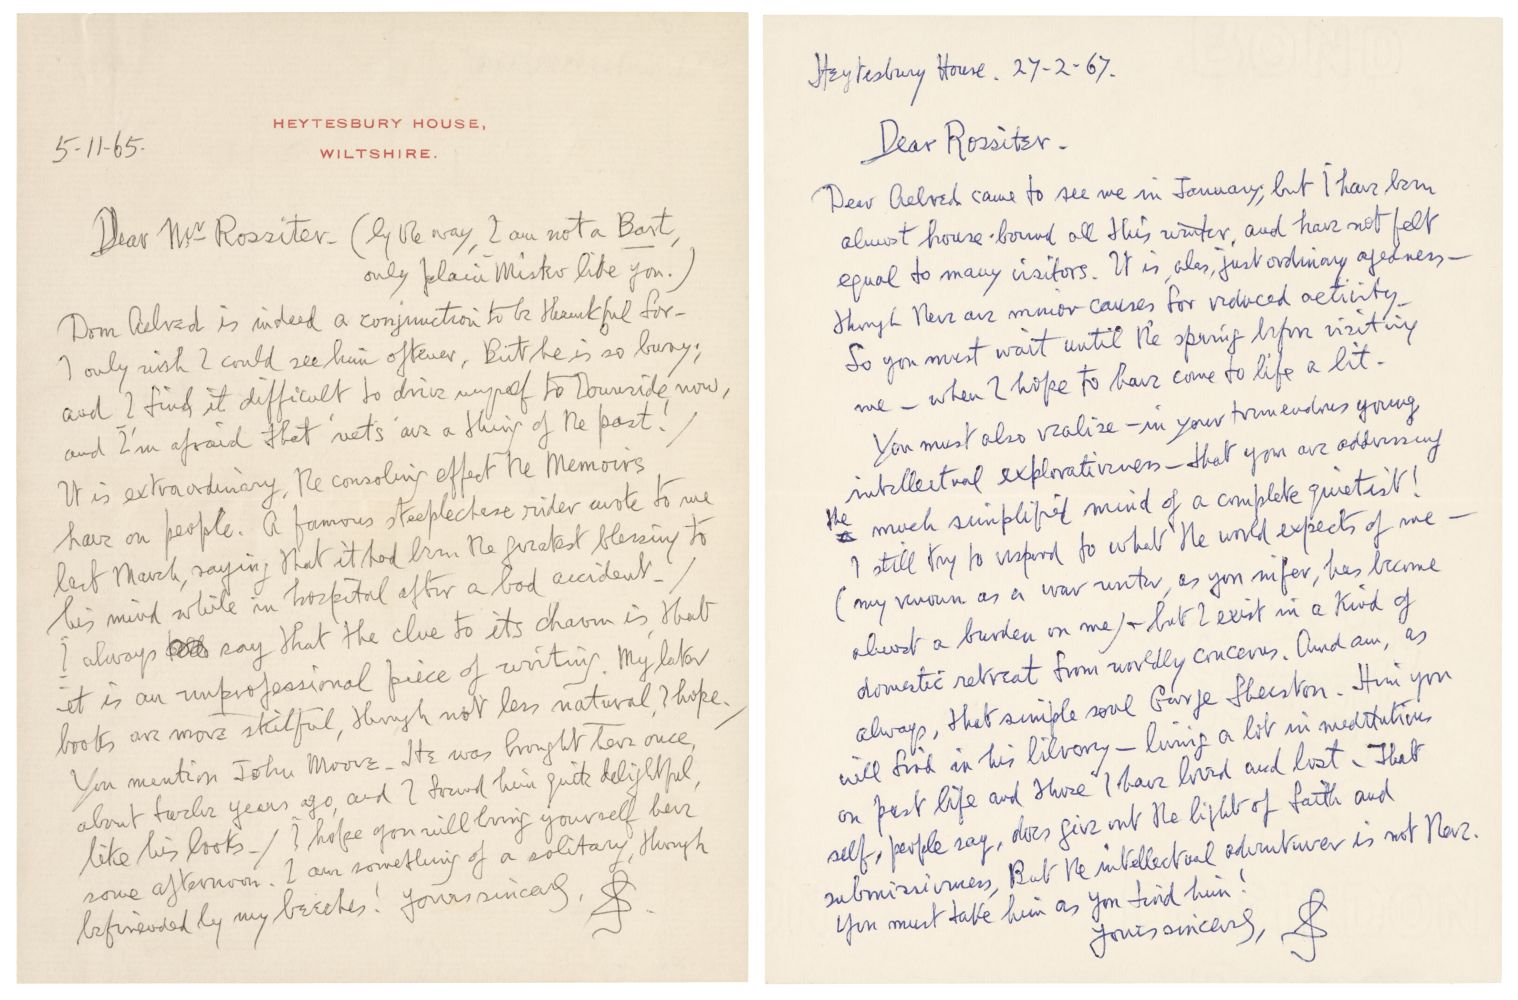 HEYTESBURY HOUSE,
WILTSHIRE.
5-11-65.
Dear Mr Rossiter - (by the way, I am not a Bart,
only plain Mister like you.)
Dom Aelred is indeed a conjunction to be thankful for -
I only wish I could see him oftener, But he is so busy;
and I find it difficult to drive myself to Downside now,
and I'm afraid that are a thing of the past! /
It is extraordinary, the consoling effect the Memoirs
have on people. A famous steeplechase rider wrote to me
last March, saying that it had been the greatest blessing to
his mind while in hospital after a bad accident - /
I always say that the clue to its charm is, that
it is an unprofessional piece of writing. My later
books are more skilful, though not less natural, I hope. /
You mention John Moore - He was brought here once,
about twelve years ago, and I found him quite delightful,
like his books - / I hope you will bring yourself here
some afternoon. I am something of a solitary, though
befriended by my beeches! Yours sincerely,
SS.
Heytesbury House. 27-2-67.
Dear Rossiter -
Dear Aelred came to see me in January, but I have been
almost house-bound all this winter, and have not felt
equal to many visitors. It is, alas, just ordinary agedness -
though there are minor causes for reduced activity -
So you must wait until the spring before visiting
me - when I hope to have come to life a bit -
You must also realise - in your tremendous young
intellectual explorativeness - that you are addressing
the much simplified mind of a complete quietist!
I still try to respond to what the world expects of me -
(my renown as a war writer, as you infer, has become
almost a burden on me) - but I exist in a kind of
domestic retreat from worldly concerns. And am, as
always, that simple soul George Sherston - Him you
will find in his library - living a lot in meditations
on past life and those I have loved and lost - That
self, people say, does give out the light of faith and
submissiveness, But the intellectual adventurer is not there.
You must take him as you find him!
Yours sincerely,
SS